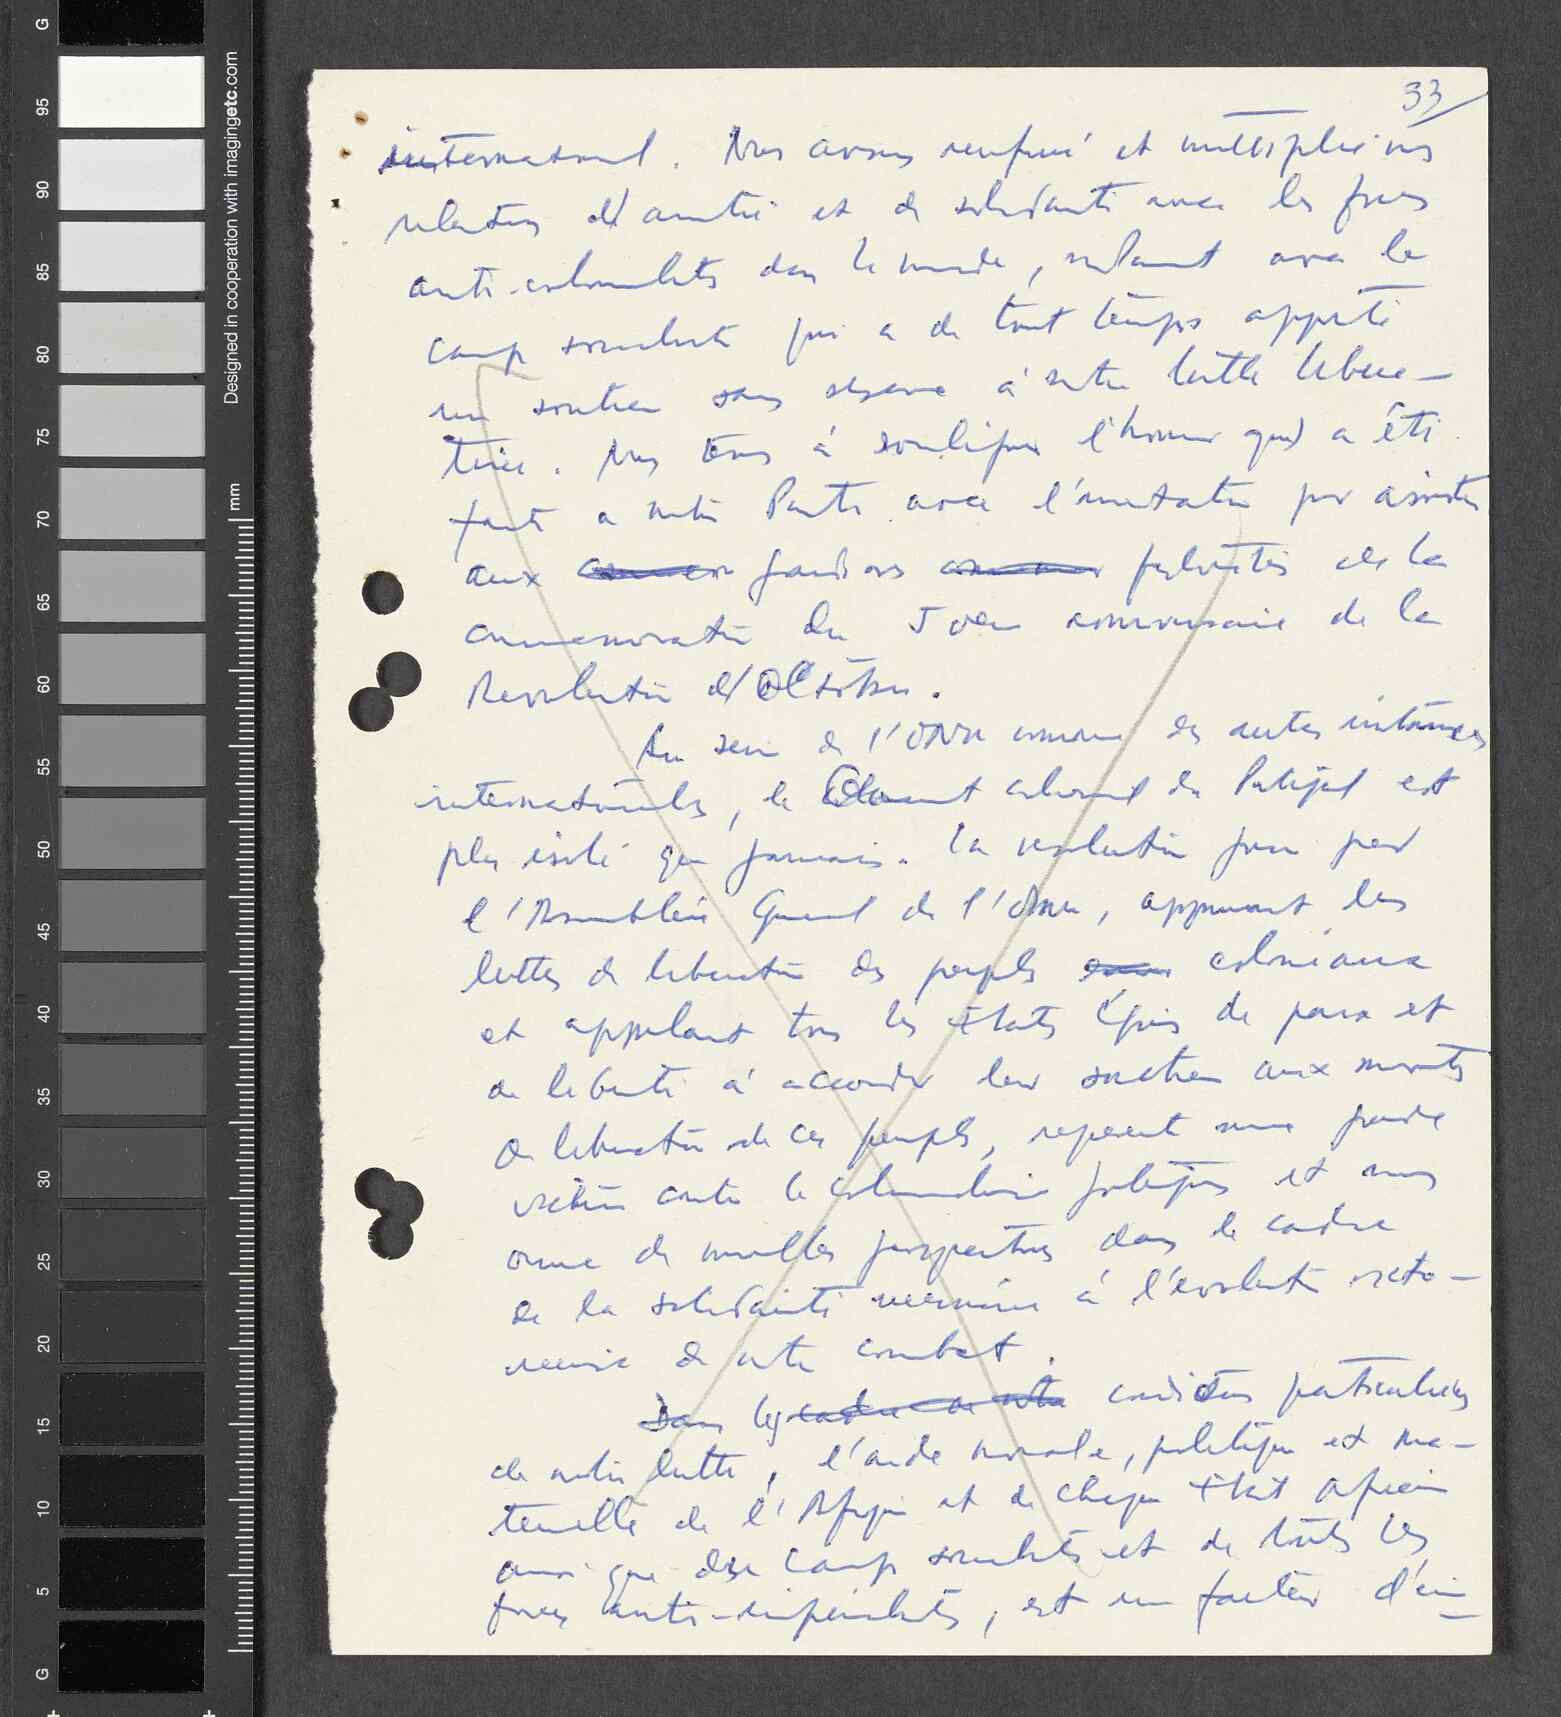 33
international. Nous avons renforcé et multiplié nos
relations d'amitié et de solidarité avec les forces
anti-colonialistes dans le monde, notamment avec le
camp socialiste qui a de tout temps apporté
un soutien sans réserve à notre lutte libéra-
trice. Nous tenons à souligner l'honneur qui a été
faite a notre Parti avec l'invitation pour assister
aux grandioses festivités de la
commémoration du 50e anniversaire de la
Révolution d'Octobre.
Au sein de l'ONU comme des autres instances
internationales, le colonial du Portugal est
plus isolé que jamais. La résolution prise par
l'Assemblée Générale de l'ONU, appuyant les
luttes de libération des peuples coloniaux
et appelant tous les États épris de paix et
de liberté à accorder leur soutien aux mouvements
de libération de ces peuples, représente une grande
victoire contre le colonialisme portugais et nous
ouvre de nouvelles perspectives dans le cadre
de la solidarité nécessaire à l'évolution victo-
rieuse de notre combat.
Dans les conditions particulières
de notre lutte, l'aide morale, politique et ma-
térielle de l'Afrique et de chaque État africain
ainsi que du camp socialiste et de toutes les
forces anti-impérialistes, est un facteur d'im-
G
95
90
85
80
75
70
65
60
55
50
45
40
35
30
25
20
15
10
5
G
mm
Designed in cooperation with imagingetc.com